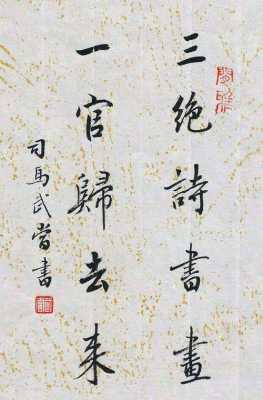 三絶詩書畫
一官歸去来
司馬武當書